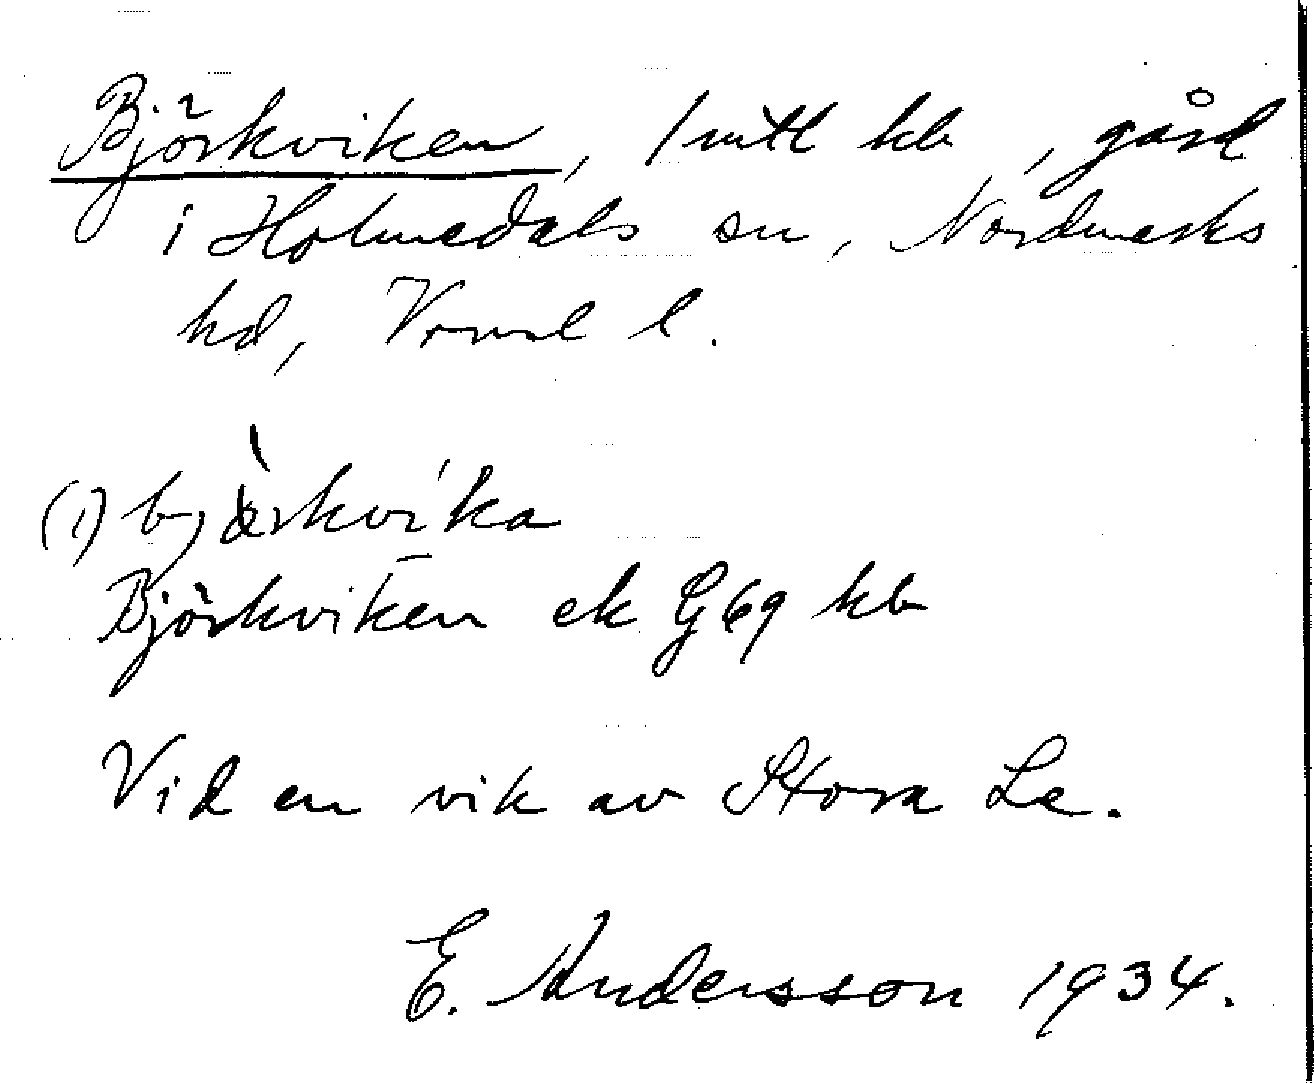 Björkviken, 1 mtl kb, gård
i Holmedals sn, Nordmarks
hd, Vrml l.
(i) bjærkvika
Björkviken ek G69 kb
Vid en vik av Stora Le.
E. Andersson 1934.